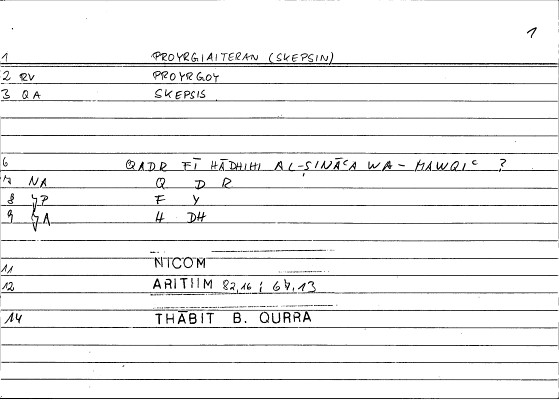 1
1 PROYRGIAITERAN (SKEPSIN)
2 RV PROYRGOY
3 QA SKEPSIS
6 QADR FĪ HĀDHIHI AL-ṢINĀʿA WA-MAWQIʿ ?
NA Q D R
8 P F Y
9 A H DH
11 NICOM
12 ARITIIM 82,16 ; 64,13
14 THĀBIT B. QURRA